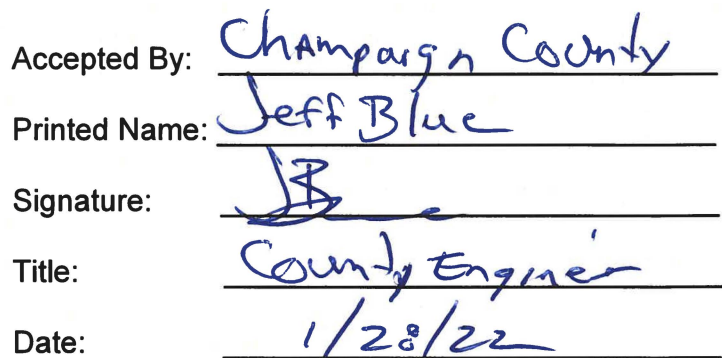 Accepted By: Champaign County
Printed Name: Jeff Blue
Signature: JB
Title: County Engineer
Date: 1/28/22